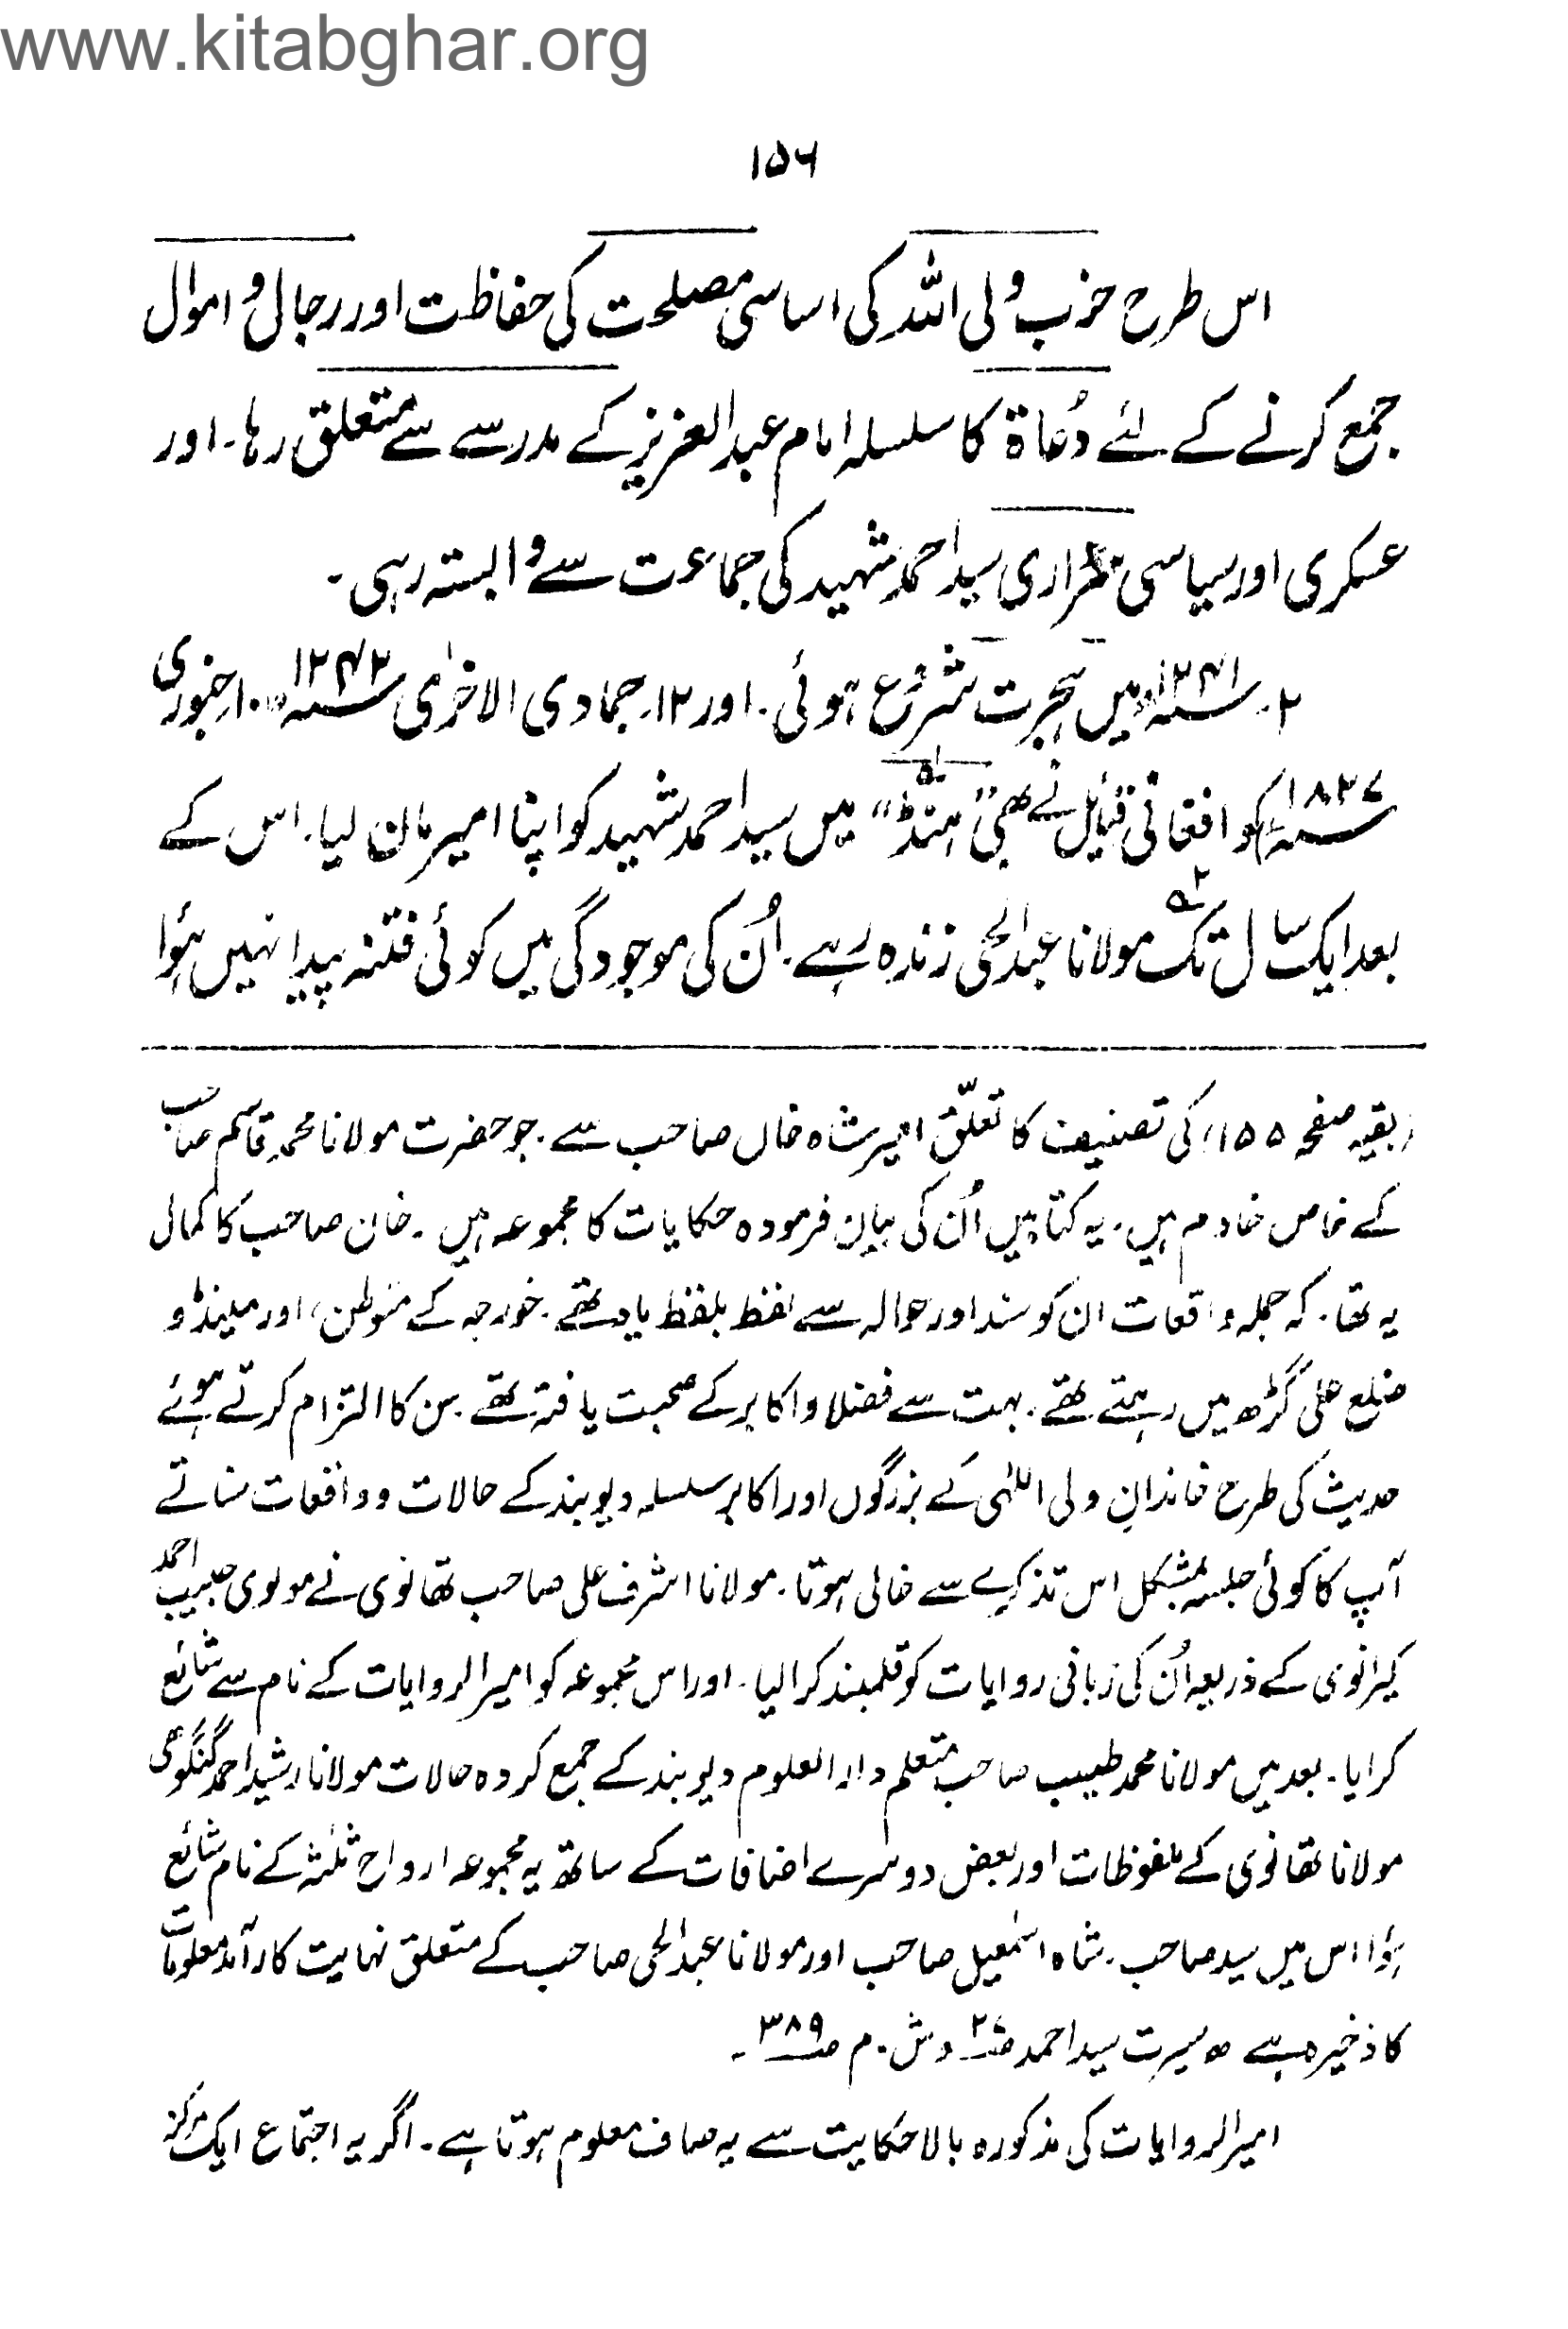 www.kitabghar.org
۱۵۶
اس طرح حزب ولی اللہ کی اساسی مصلحت کی حفاظت اور رجال و اموال
جمع کرنے کے لئے دُعاۃ کا سلسلہ امام عبدالعزیز کے مدرسے سے متعلق رہا۔ اور
عسکری اور سیاسی سید احمد شہید کی جماعت سے وابستہ رہی۔
۲۔ سنہ ۱۲۴۱ھ میں ہجرت شروع ہوئی۔ اور ۱۲۔ جمادی الاخرٰی سنہ ۱۲۴۲ھ ۱۰۔ جنوری
سنہ ۱۸۲۷ء کو افغانی قبائل نے بھی "ہنڈ" ۱؎ میں سید احمد شہید کو اپنا امیر مان لیا۔ اس کے
بعد ایک سال تک ۲؎ مولانا عبدالحی زندہ رہے۔ اُن کی موجودگی میں کوئی فتنہ پیدا نہیں ہؤا
(بقیہ صفحہ ۱۵۵) کی تصنیف کا تعلّق امیر شاہ خاں صاحب سے۔ جو حضرت مولانا محمد قاسم صاحب
کے خاص خادم ہیں۔ یہ کتابیں اُن کی بیان فرمودہ حکایات کا مجموعہ ہیں۔ خان صاحب کا کمال
یہ تھا۔ کہ جملہ واقعات ان کو سند اور حوالہ سے لفظ بلفظ یاد تھے۔ خورجہ کے متوطن، اور مینڈو
ضلع علی گڑھ میں رہتے تھے۔ بہت سے فضلا و اکابر کے صحبت یافتہ تھے۔ سن کا التزام کرتے ہوئے
حدیث کی طرح خاندانِ ولی اللّٰہی کے بزرگوں اور اکابر سلسلہ دیوبند کے حالات و واقعات سناتے
آپ کا کوئی جلسہ بمشکل اس تذکرے سے خالی ہوتا۔ مولانا اشرف علی صاحب تھانوی نے مولوی حبیب احمد
کیرانوی کے ذریعہ اُن کی زبانی روایات کو قلمبند کرا لیا۔ اور اس مجموعہ کو امیر الروایات کے نام سے شائع
کرایا۔ بعد میں مولانا محمد طیب صاحب متعلم دار العلوم دیوبند کے جمع کردہ حالات مولانا رشید احمد گنگوہی
مولانا تھانوی کے ملفوظات اور بعض دوسرے اضافات کے ساتھ یہ مجموعہ ارواح ثلٰثہ کے نام شائع
ہؤا اس میں سید صاحب۔ شاہ اسمٰعیل صاحب اور مولانا عبدالحی صاحب کے متعلق نہایت کار آمد معلومات
کا ذخیرہ ہے سیرت سید احمد صـ۲۷ و ش۔ م صـ۳۸۹۔
امیر الروایات کی مذکورہ بالا حکایت سے یہ صاف معلوم ہوتا ہے۔ اگر یہ اجتماع ایک مرکز